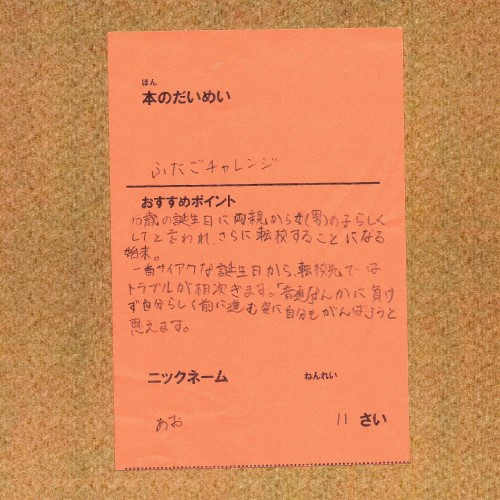 ほん
本のだいめい
ふたごチャレンジ
おすすめポイント
10歳の誕生日に両親から女(男)の子らしく
してと言われ、さらに転校することになる
始末。
一番サイアクな誕生日から、転校先では
トラブルが相次ぎます。「普通」なんかに負け
ず自分らしく前に進む姿に自分もがんばろうと
思えます。
ニックネーム
ねんれい
あお
11 さい